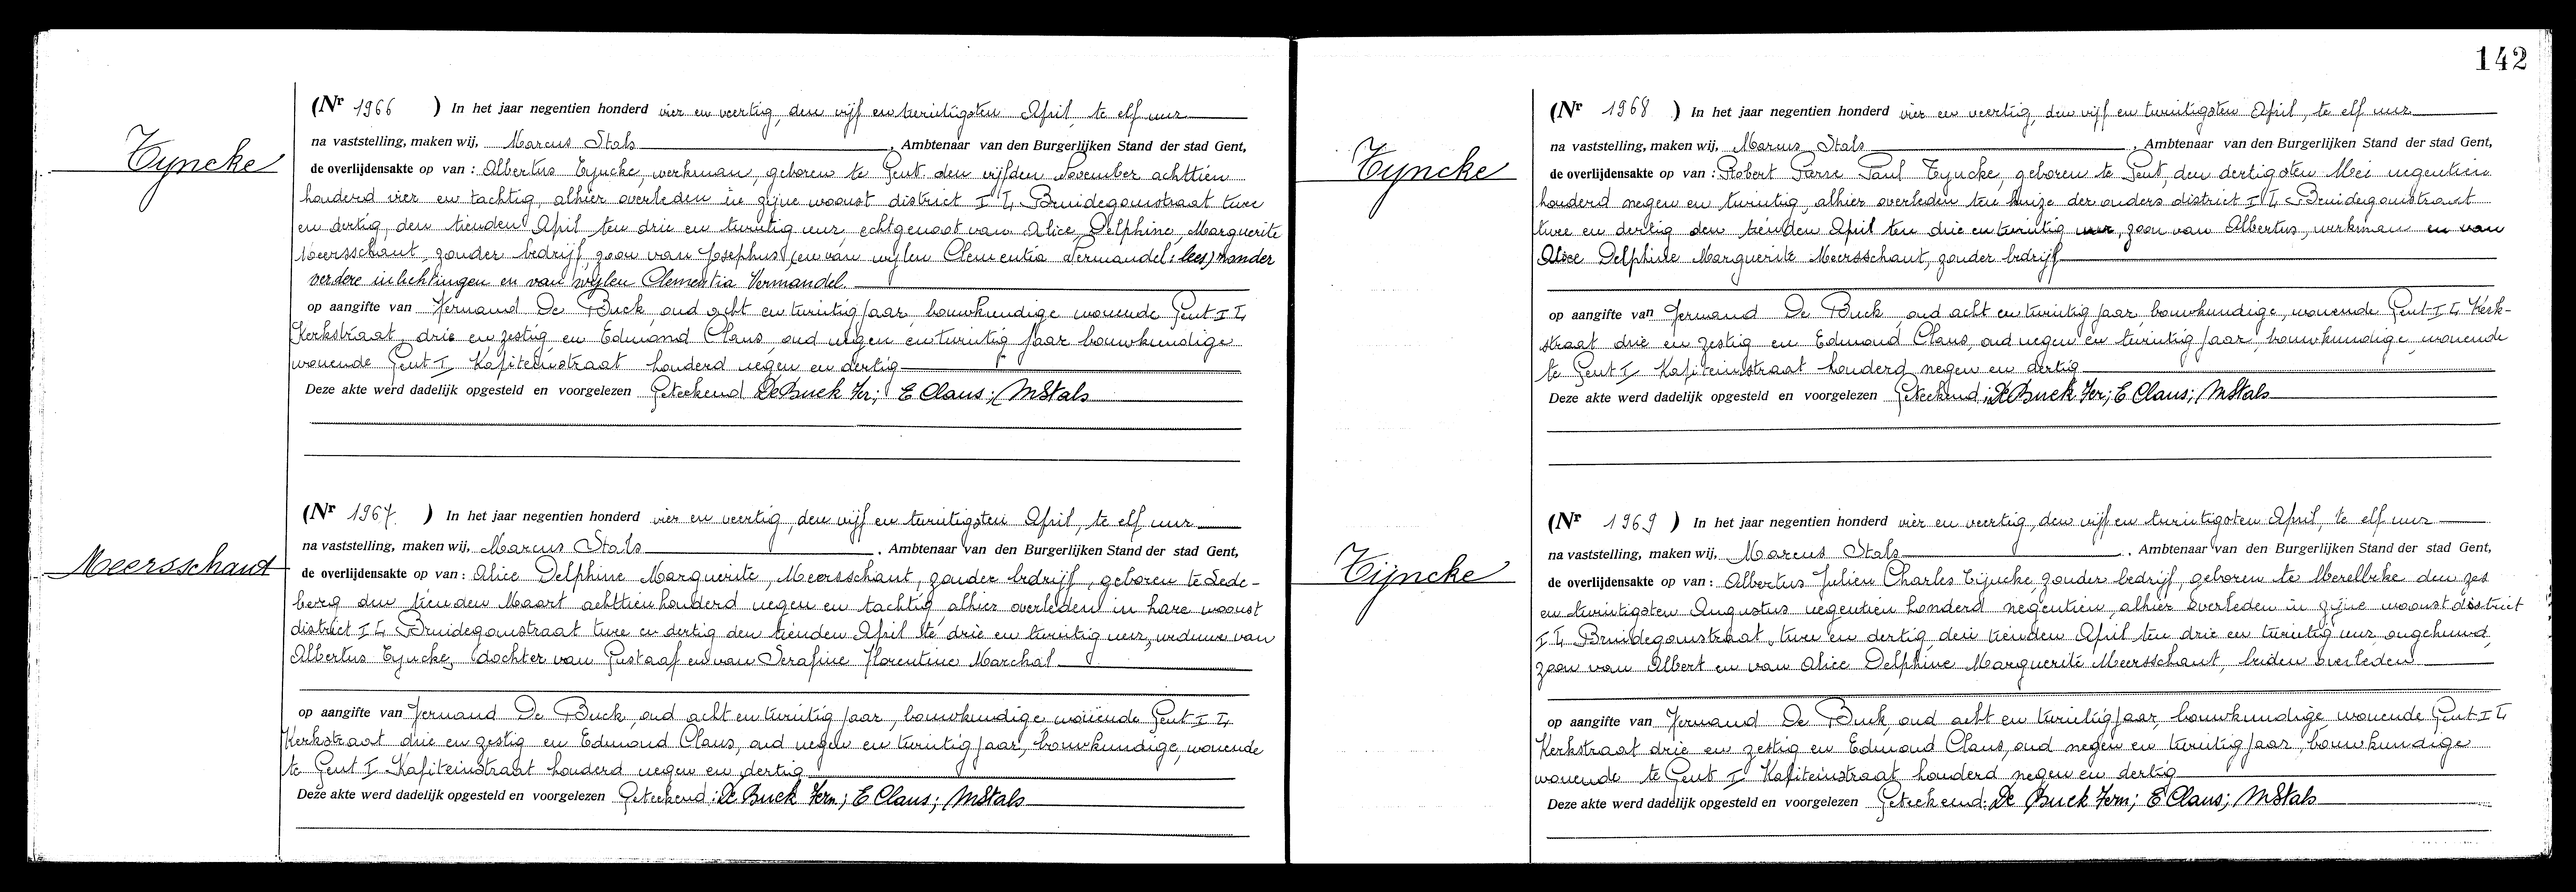 142
Tyncke
(Nr 1966 ) In het jaar negentien honderd vier en veertig, den vijf en twintigsten April, te elf uur
na vaststelling, maken wij, Marcus Stals, Ambtenaar van den Burgerlijken Stand der stad Gent,
de overlijdensakte op van : Albertus Tyncke, werkman, geboren te Gent den vijfden November achttien
honderd vier en tachtig, alhier overleden in zijne woonst district I 4 Bruidegomstraat twee
en dertig, den tienden April ten drie en twintig uur, echtgenoot van Alice, Delphine, Marguerite
Meersschaut, zonder bedrijf, zoon van Josephus (en van wijlen Clementia Vermandel: lees) zonder
verdere inlichtingen en van wijlen Clementia Vermandel.
op aangifte van Fernand De Buck, oud acht en twintig jaar, bouwkundige wonende Gent I 4
Kerkstraat, drie en zestig en Edmond Claus, oud negen en twintig jaar bouwkundige
wonende Gent I Kapiteinstraat honderd negen en dertig
Deze akte werd dadelijk opgesteld en voorgelezen Geteekend De Buck Fer; E Claus; MStals
Meersschaut
(Nr 1967. ) In het jaar negentien honderd vier en veertig, den vijf en twintigsten April, te elf uur
na vaststelling, maken wij, Marcus Stals. Ambtenaar van den Burgerlijken Stand der stad Gent,
de overlijdensakte op van : Alice Delphine Marguerite, Meersschaut, zonder bedrijf, geboren te Lede-
berg den tienden Maart achttienhonderd negen en tachtig alhier overleden in hare woonst
district I 4 Bruidegomstraat twee en dertig den tienden April te drie en twintig uur, weduwe van
Albertus Tyncke, dochter van Gustaaf en van Serafine Florentine Marchal
op aangifte van Fernand De Buck, oud acht en twintig jaar, bouwkundige wonende Gent I 4
Kerkstraat drie en zestig en Edmond Claus, oud negen en twintig jaar, bouwkundige, wonende
te Gent I Kapiteinstraat honderd negen en dertig
Deze akte werd dadelijk opgesteld en voorgelezen Geteekend: De Buck Fern; E Claus; MStals
Tyncke
(Nr 1968 ) In het jaar negentien honderd vier en veertig, den vijf en twintigsten April, te elf uur
na vaststelling, maken wij, Marcus Stals, Ambtenaar van den Burgerlijken Stand der stad Gent,
de overlijdensakte op van : Robert Pierre Paul Tyncke, geboren te Gent, den dertigsten Mei negentien
honderd negen en twintig, alhier overleden ten huize der ouders district I 4 Bruidegomstraat
twee en dertig den tienden April ten drie en twintig uur, zoon van Albertus, werkman en van
Alice Delphine Marguerite Meersschaut, zonder bedrijf
op aangifte van Fernand De Buck, oud acht en twintig jaar, bouwkundige, wonende Gent I 4 Kerk-
straat drie en zestig en Edmond Claus, oud negen en twintig jaar, bouwkundige wonende
te Gent I Kapiteinstraat honderd negen en dertig
Deze akte werd dadelijk opgesteld en voorgelezen Geteekend: De Buck Fer; E Claus; MStals
Tijncke
(Nr 1969 ) In het jaar negentien honderd vier en veertig, den vijf en twintigsten April, te elf uur
na vaststelling, maken wij, Marcus Stals, Ambtenaar van den Burgerlijken Stand der stad Gent,
de overlijdensakte op van : Albertus Julien Charles Tijncke, zonder bedrijf, geboren te Merelbeke den zes
en twintigsten Augustus negentien honderd negentien, alhier overleden in zijne woonst district
I 4 Bruidegomstraat, twee en dertig, den tienden April ten drie en twintig uur ongehuwd,
zoon van Albert en van Alice Delphine Marguerite Meersschaut, beiden overleden
op aangifte van Fernand De Buck, oud acht en twintig jaar, bouwkundige wonende Gent I 4
Kerkstraat drie en zestig en Edmond Claus, oud negen en twintig jaar, bouwkundige
wonende te Gent I Kapiteinstraat honderd negen en dertig
Deze akte werd dadelijk opgesteld en voorgelezen Geteekend: De Buck Fern; E Claus; MStals